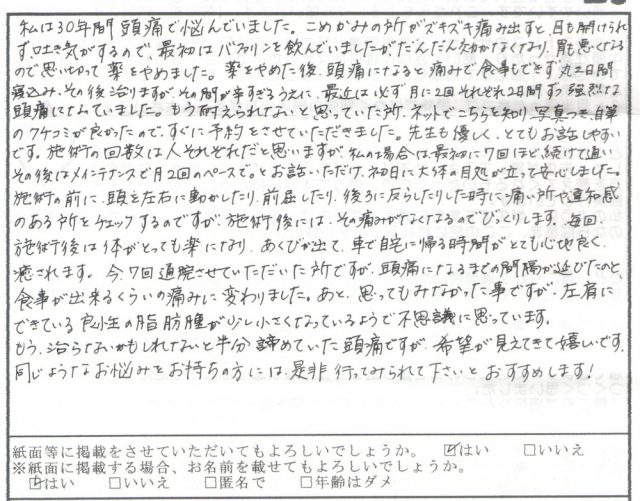 私は30年間 頭痛で悩んでいました。こめかみの所がズキズキ痛み出すと、目も開けられ
ず、吐き気がするので、最初はバファリンを飲んでいましたがだんだん効かなくなり、胃も悪くなる
ので思い切って薬をやめました。薬をやめた後、頭痛になると痛みで食事もできず丸2日間
寝込み、その後治りますが、その間が辛すぎるうえに、最近は必ず月に2回それぞれ2日間ずつ強烈な
頭痛になっていました。もう耐えられないと思っていた所、ネットでこちらを知り、写真つき、自筆
のクチコミが良かったので、すぐに予約をさせていただきました。先生も優しく、とてもお話しやすい
です。施術の回数は人それぞれだと思いますが、私の場合は、最初に7回ほど続けて通い
その後はメインテナンスで月2回のペースで。とお話いただけ、初日に大体の目処が立って安心しました。
施術の前に、頭を左右に動かしたり、前屈したり、後ろに反らうしたりした時に痛い所や違和感
のある所をチェックするのですが、施術後には、その痛みがなくなるのでびっくりします。毎回、
施術後は体がとっても楽になり、あくびが出て、車で自宅に帰る時間がとても心地良く、
癒されます。今、7回通院させていただいた所ですが、頭痛になるまでの間隔が延びたのと、
食事が出来るくらいの痛みに変わりました。あと、思ってもみなかった事ですが、左肩に
できている良性の脂肪腫が少し小さくなっているようで不思議に思っています。
もう、治らないかもしれないと半分諦めていた頭痛ですが、希望が見えてきて嬉しいです。
同じようなお悩みをお持ちの方には、是非 行ってみられて下さいと おすすめします!
紙面等に掲載をさせていただいてもよろしいでしょうか。 ☑はい □いいえ
※紙面に掲載する場合、お名前を載せてもよろしいでしょうか。
☑はい □いいえ □匿名で □年齢はダメ